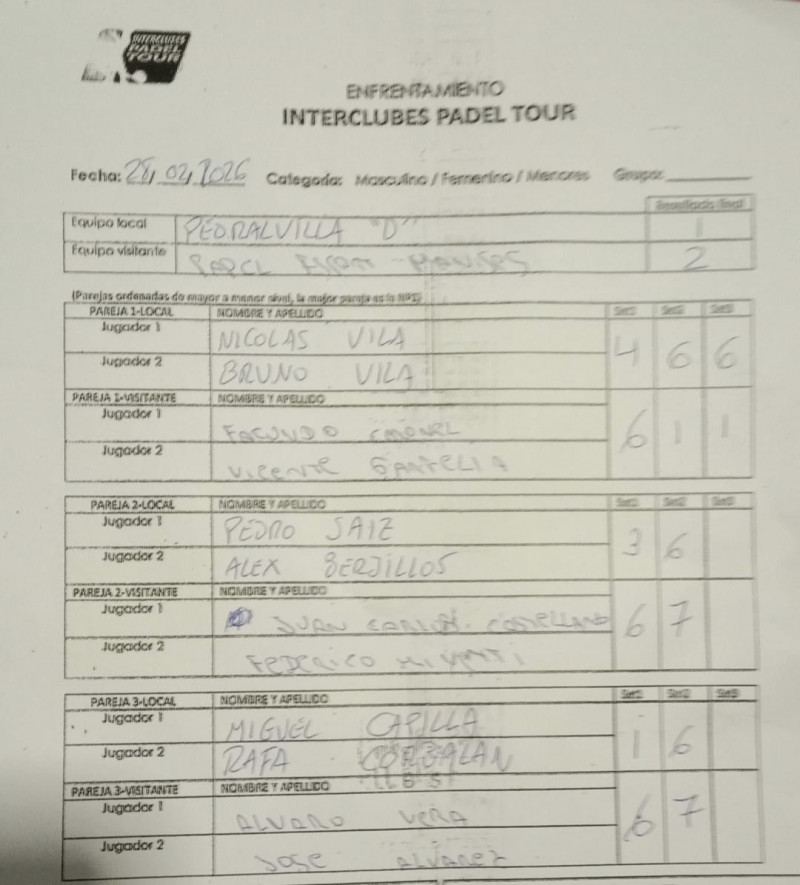 INTERCLUBES
PADEL
TOUR
ENFRENTAMIENTO
INTERCLUBES PADEL TOUR
Fecha: 28/02/2026 Categoría: Masculino / Femenino / Menores Grupo:
Resultado final
Equipo local PEDRALVILLA "D" 1
Equipo visitante 2
(Parejas ordenadas de mayor a menor nivel, la mejor pareja es la Nº1)
PAREJA 1-LOCAL NOMBRE Y APELLIDO Set1 Set2 Set3
Jugador 1 NICOLAS VILA
4 6 6
Jugador 2 BRUNO VILA
PAREJA 1-VISITANTE NOMBRE Y APELLIDO
Jugador 1 FACUNDO
6 1 1
Jugador 2 VICENTE
PAREJA 2-LOCAL NOMBRE Y APELLIDO Set1 Set2 Set3
Jugador 1 PEDRO SAIZ
3 6
Jugador 2 ALEX BERJILLOS
PAREJA 2-VISITANTE NOMBRE Y APELLIDO
Jugador 1 JUAN CARLOS
6 7
Jugador 2 FEDERICO
PAREJA 3-LOCAL NOMBRE Y APELLIDO Set1 Set2 Set3
Jugador 1 MIGUEL CAPILLA
1 6
Jugador 2 RAFA CORBALAN
PAREJA 3-VISITANTE NOMBRE Y APELLIDO
Jugador 1 ALVARO VERA
6 7
Jugador 2 JOSE ALVAREZ